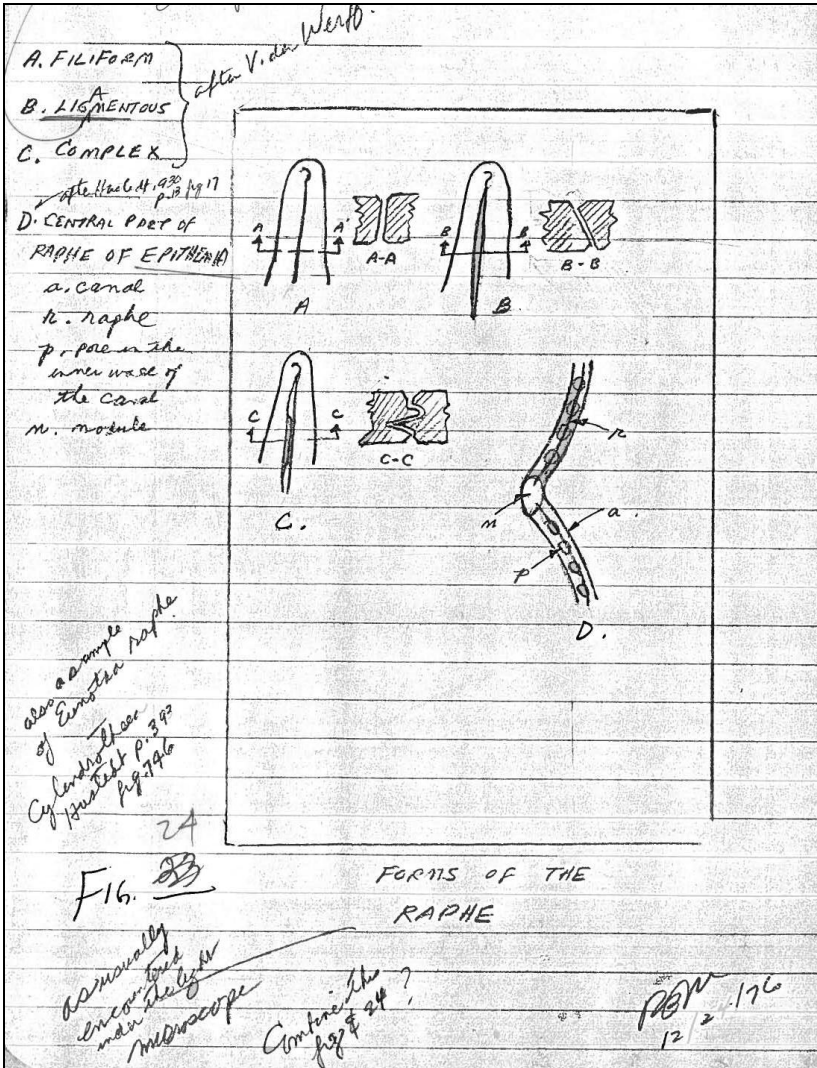 after V. der Werff.
A. FILIFORM
A
B. LIGMENTOUS
C. COMPLEX
after Hustedt, 1930
p. 13 fig 17
D. CENTRAL PART OF
RAPHE OF EPITHEMIA
a. canal
r. raphe
p. pore in the
inner wase of
the canal
n. nodule
A A
A-A
A
B B
B-B
B
C C
C-C
C.
r
n
a.
p
D.
also a sample
of Eunotia raphe
Cylendrotheca
Hustedt p. 392
fig. 746
24
FIG. 23
FORMS OF THE
RAPHE
as usually
encountered
under the light
microscope
Combine this
fig & 24 ?
12/2 /76